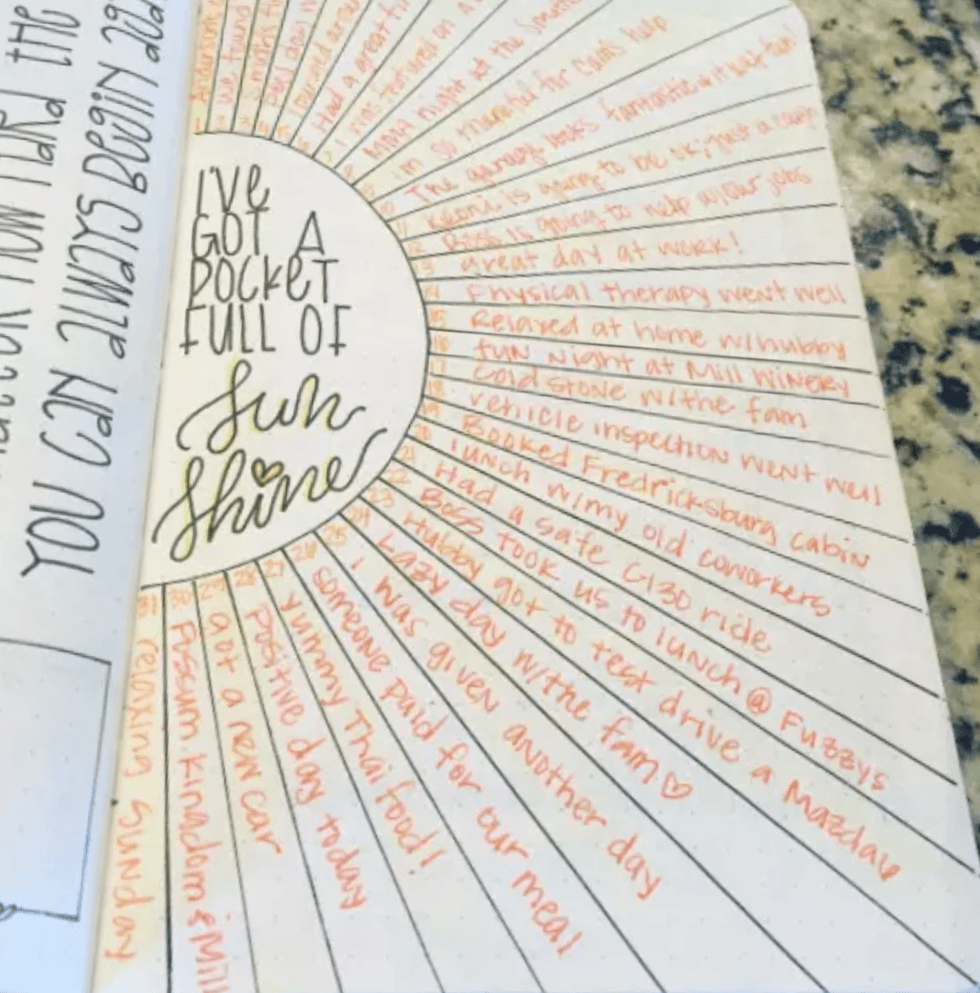 HOW HARD THE
YOU CAN ALWAYS BEGIN
I'VE
GOT A
POCKET
FULL OF
Sun
Shine
1
we found
2
3
4
5
6 Had a great
7 I was featured on
8 Mama night at the
9 I'm so thankful for help
10 The garage looks fantastic
11 is going to be ok, just a
12 Boss is going to help w/our jobs
13 great day at work!
14 Physical therapy went well
15 Relaxed at home w/hubby
16 fun night at Mill Winery
17 Cold Stone w/the fam
18 vehicle inspection went well
19 Booked Fredricksburg cabin
20 lunch w/my old coworkers
21 Had a safe C130 ride
22 Boss took us to lunch @ Fuzzys
23 Hubby got to test drive a Mazda
24 Lazy day w/the fam ♡
25 I was given another day
26 someone paid for our meal
27 yummy Thai food!
28 positive day today
29 got a new car
30 Possum Kingdom & Mill
31 relaxing Sunday